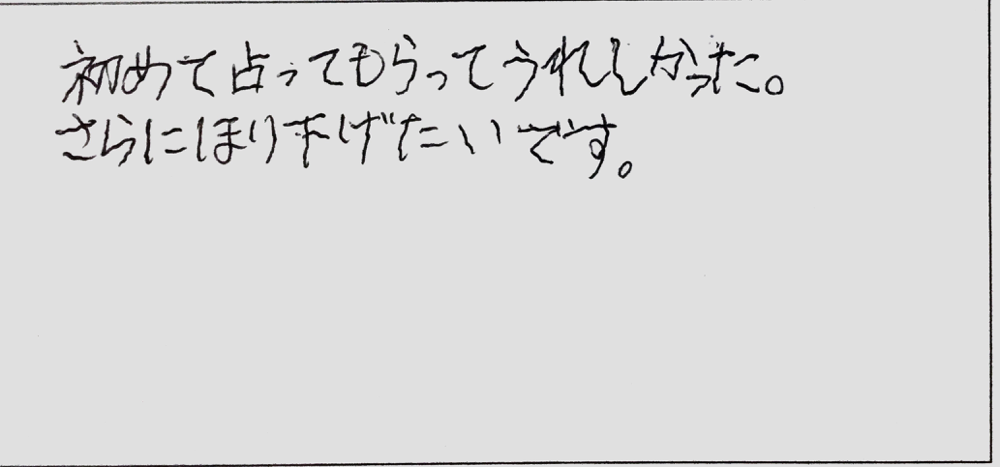 初めて占ってもらってうれしかった。
さらにほり下げたいです。